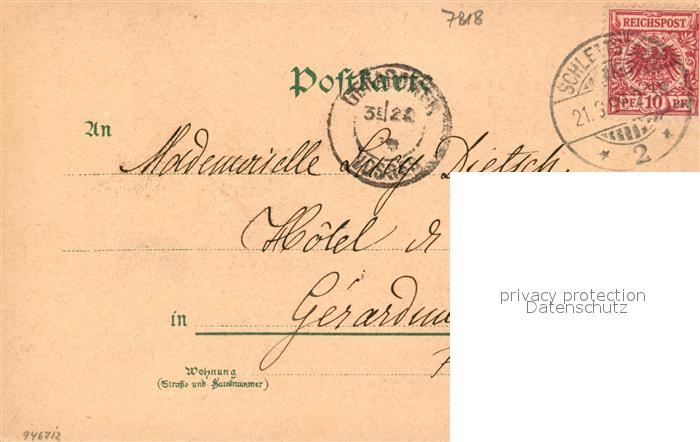 7818
REICHSPOST
PF 10 PF
SCHLETT
21.3
* 2 *
Postkarte
GERARDMER
31/22
VOSGES
An
Mademoiselle Lucy Dietsch.
Hôtel de
in Gérardm
Wohnung
(Straße und Hausnummer)
privacy protection
Datenschutz
946712